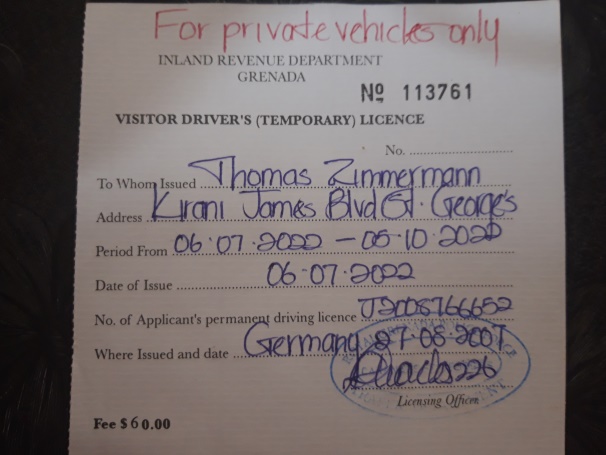 For private vehicles only
INLAND REVENUE DEPARTMENT
GRENADA
Nº 113761
VISITOR DRIVER'S (TEMPORARY) LICENCE
No. ....................
To Whom Issued Thomas Zimmermann
Address Kirani James Blvd St. George's
Period From 06.07.2022 — 05.10.2022
Date of Issue 06.07.2022
No. of Applicant's permanent driving licence J2008766652
Where Issued and date Germany 27.08.2007
226
Licensing Officer
Fee $60.00